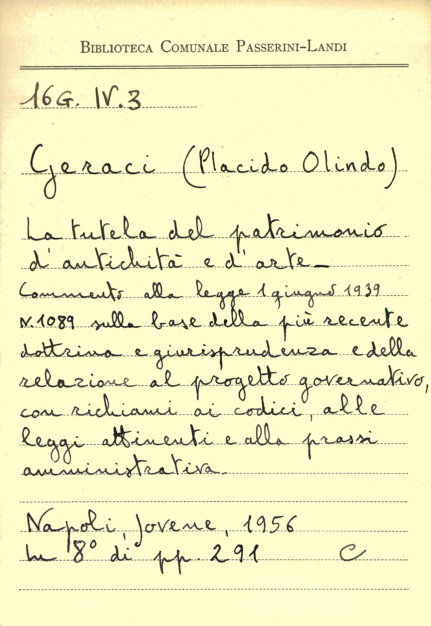 BIBLIOTECA COMUNALE PASSERINI-LANDI
16G. IV.3
Geraci (Placido Olindo)
La tutela del patrimonio
d'antichità e d'arte_
Commento alla legge 1 giugno 1939
N. 1089 sulla base della più recente
dottrina e giurisprudenza e della
relazione al progetto governativo,
con richiami ai codici, alle
leggi attinenti e alla prassi
amministrativa.
Napoli, Jovene, 1956
In 8° di pp. 291 C